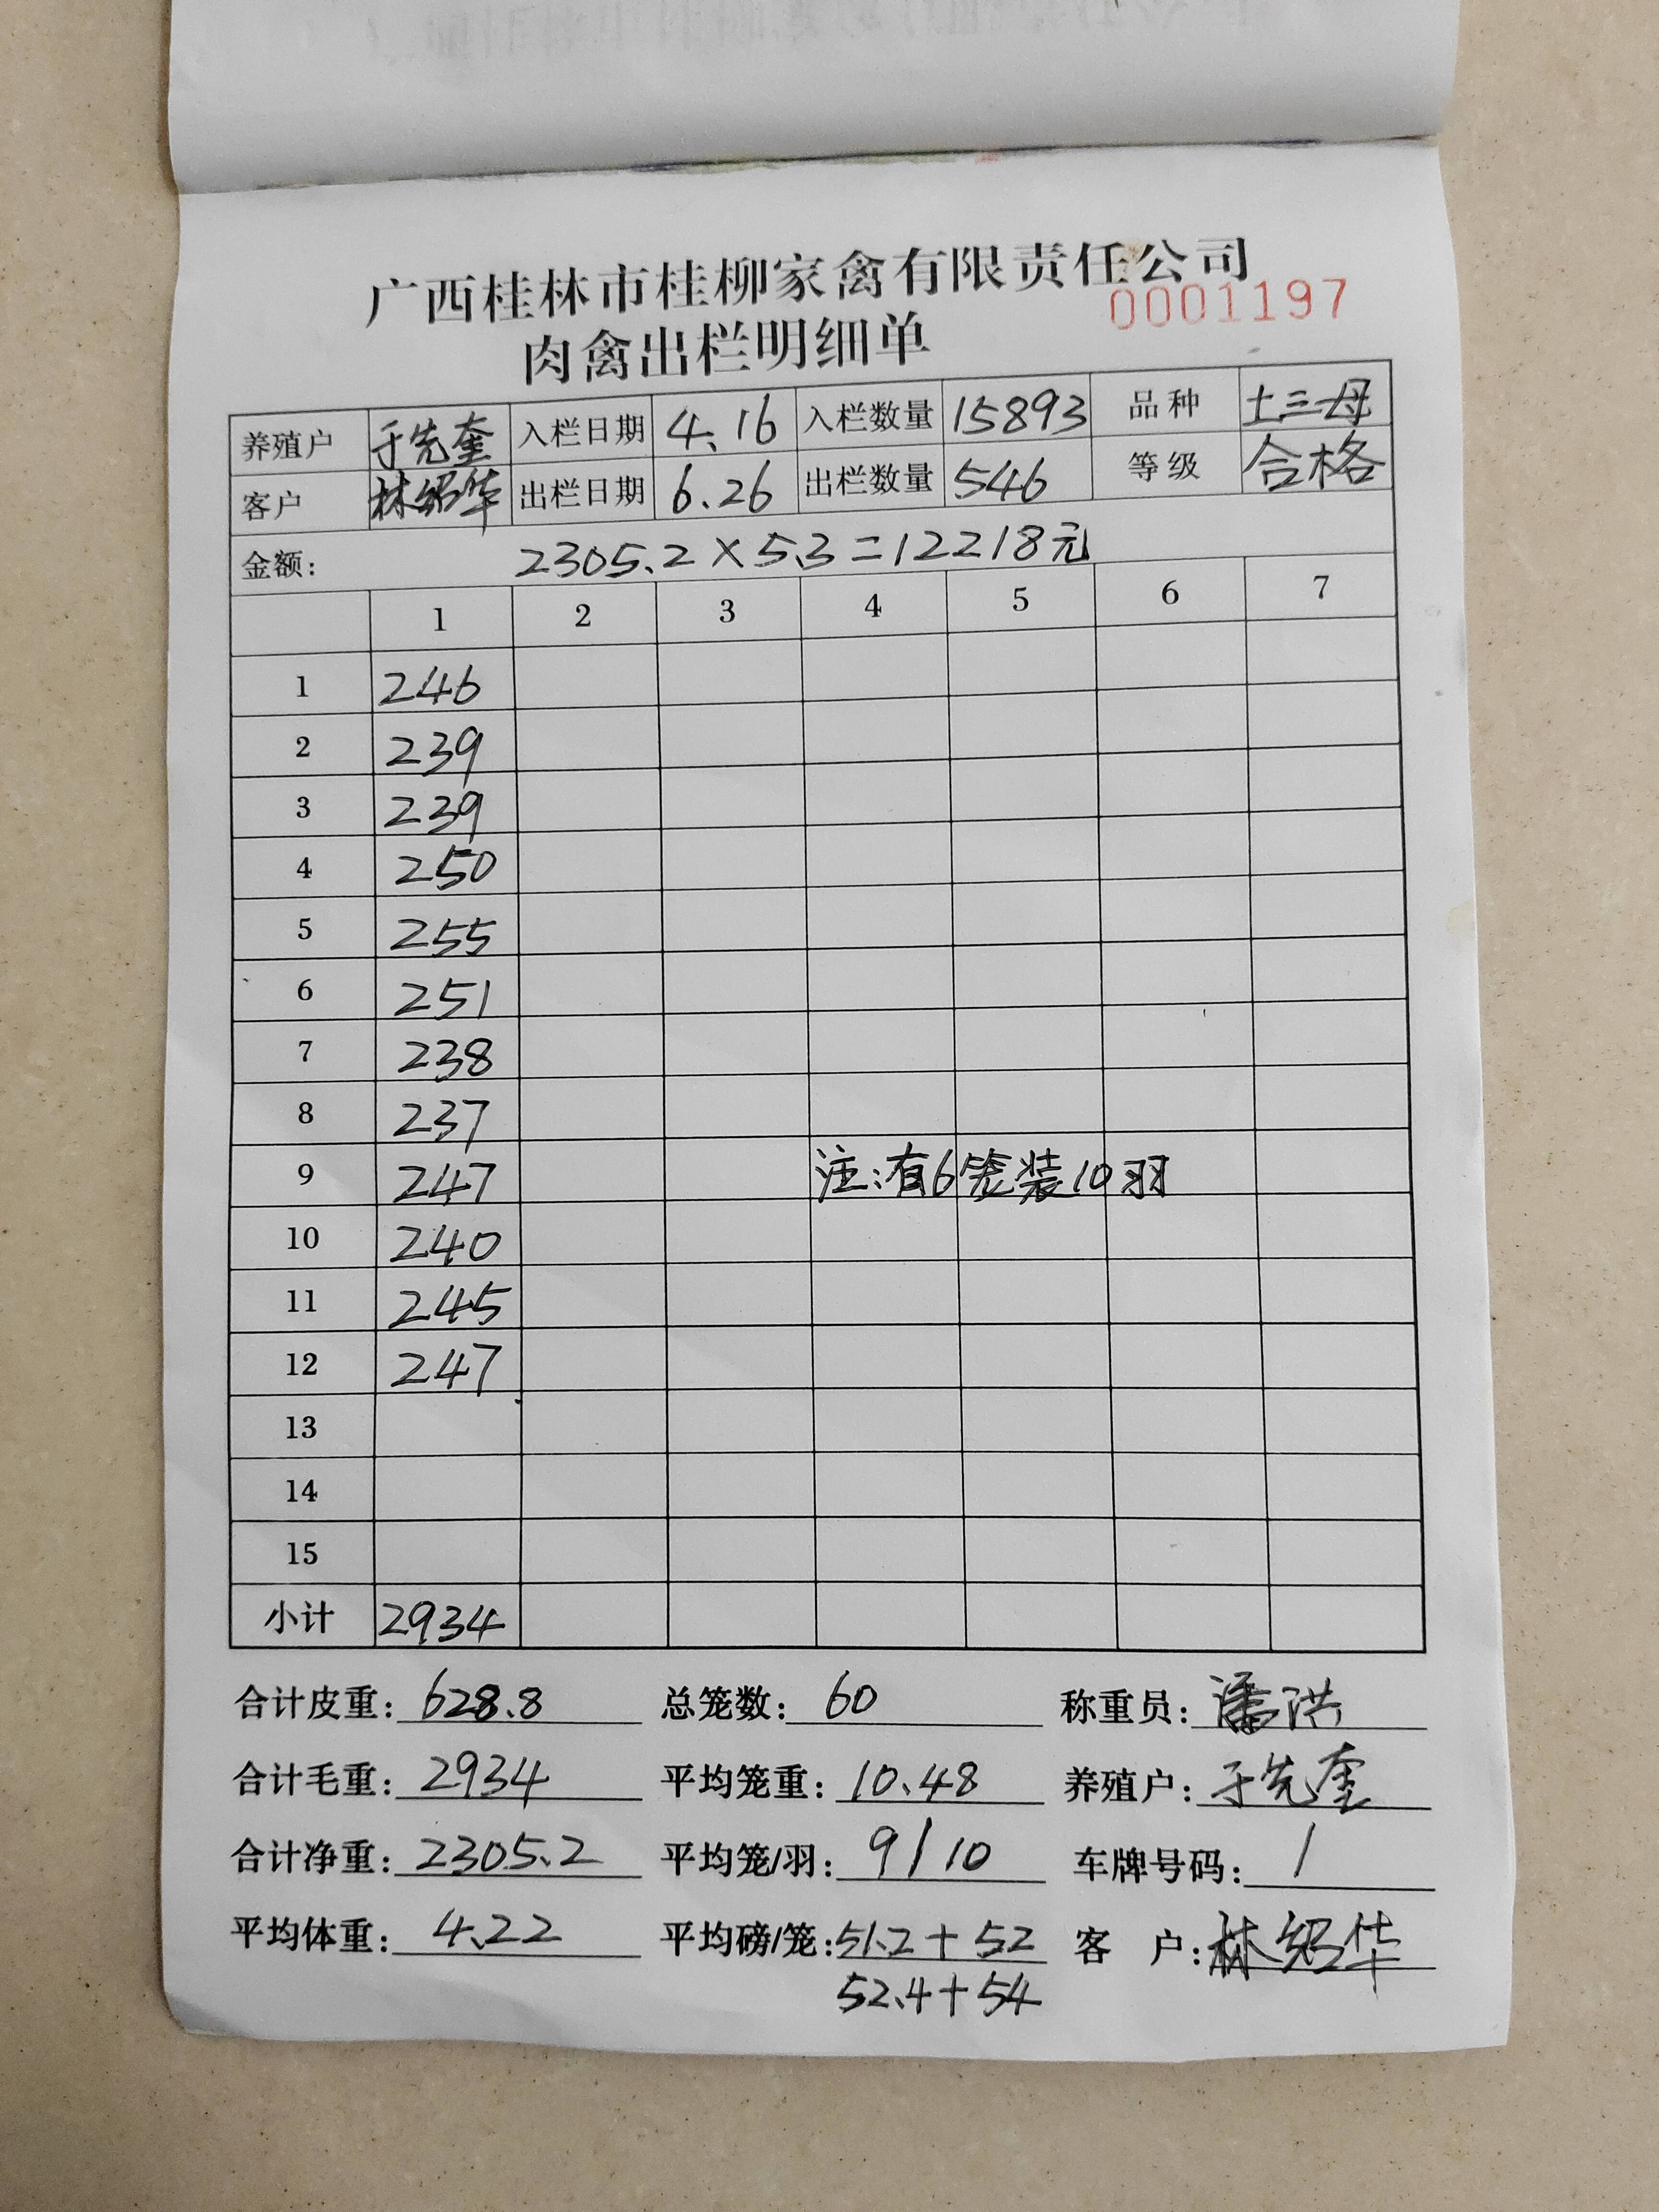 广西桂林市桂柳家禽有限责任公司
0001197
肉禽出栏明细单
养殖户 于先奎 入栏日期 4.16 入栏数量 15893 品种 土三母
客户 林绍华 出栏日期 6.26 出栏数量 546 等级 合格
金额: 2305.2×5.3=12218元
1 2 3 4 5 6 7
1 246
2 239
3 239
4 250
5 255
6 251
7 238
8 237
9 247 注:有6笼装10羽
10 240
11 245
12 247
13
14
15
小计 2934
合计皮重: 628.8 总笼数: 60 称重员: 潘洪
合计毛重: 2934 平均笼重: 10.48 养殖户: 于先奎
合计净重: 2305.2 平均笼/羽: 9/10 车牌号码: /
平均体重: 4.22 平均磅/笼: 51.2+52 客 户: 林绍华
52.4+54